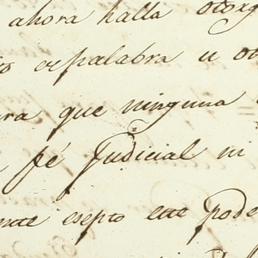 ahora halla otorg
palabra u ot
ra que ninguna
fé Judicial ni
esepto este pode